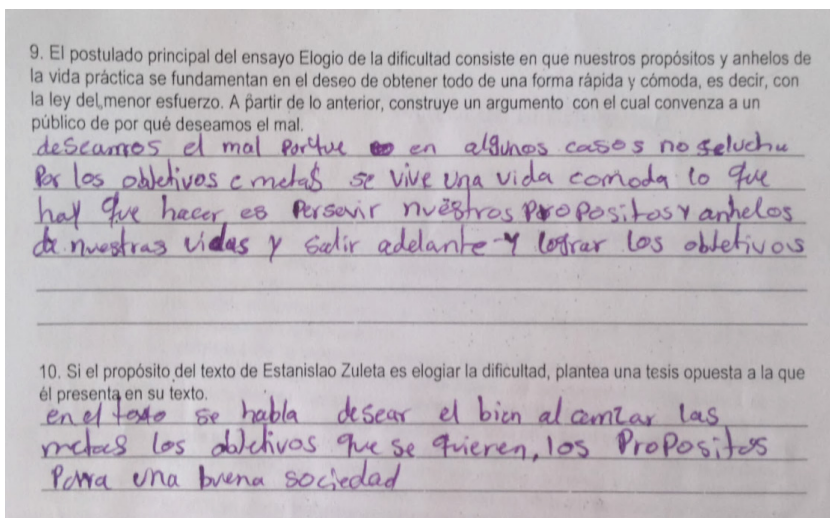 9. El postulado principal del ensayo Elogio de la dificultad consiste en que nuestros propósitos y anhelos de
la vida práctica se fundamentan en el deseo de obtener todo de una forma rápida y cómoda, es decir, con
la ley del menor esfuerzo. A partir de lo anterior, construye un argumento con el cual convenza a un
público de por qué deseamos el mal.
deseamos el mal Porque en algunos casos no se lucha
Por los objetivos e metas se vive una vida comoda lo que
hay que hacer es Perseuir nuestros ProPositos y anhelos
de nuestras vidas y Salir adelante y lograr los objetivos
10. Si el propósito del texto de Estanislao Zuleta es elogiar la dificultad, plantea una tesis opuesta a la que
él presenta en su texto.
en el texto se habla desear el bien alcanzar las
metas los objetivos que se quieren, los ProPositos
Para una buena sociedad